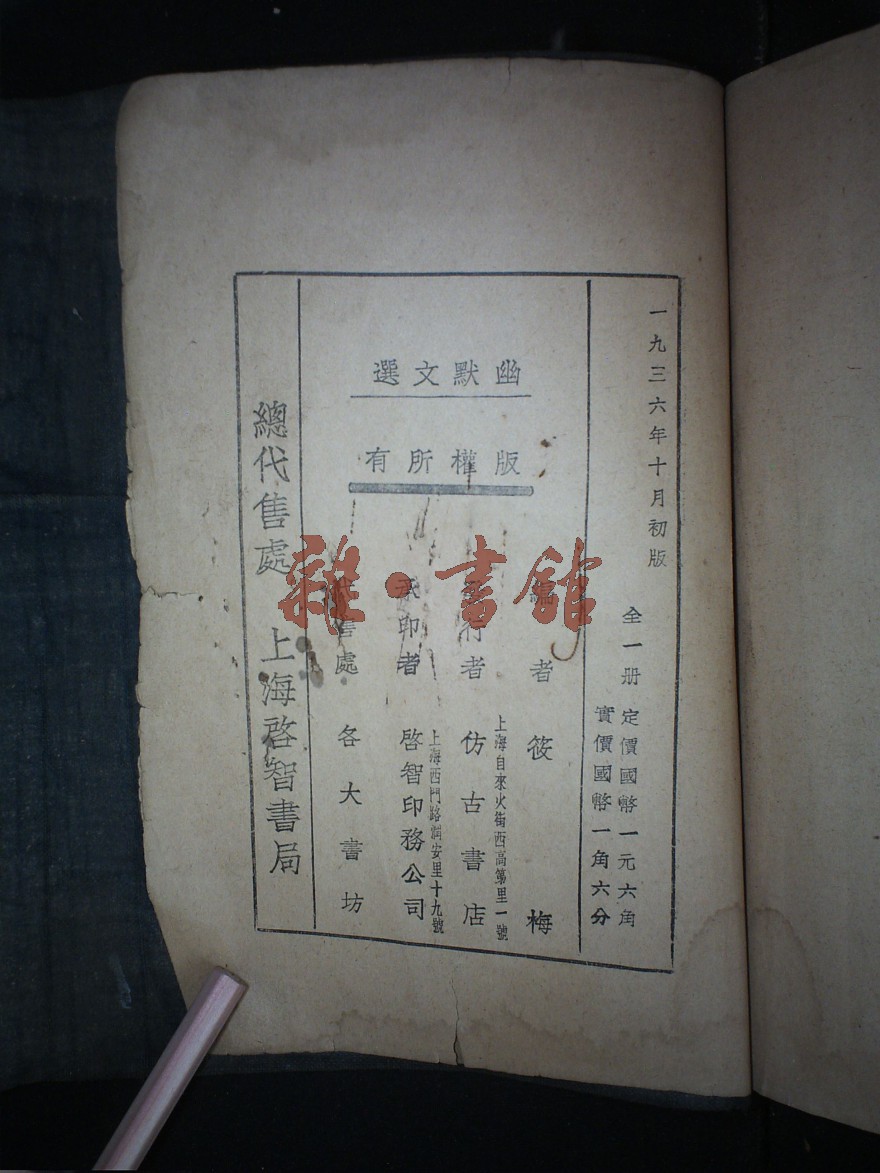 一九三六年十月初版
全一册 定價國幣一元六角
實價國幣一角六分
幽默文選
版權所有
編者 筱梅
發行者 仿古書店
上海自來火街西高第里一號
承印者 啓智印務公司
上海西門路潤安里十九號
售處 各大書坊
總代售處 上海啓智書局
雜·書館